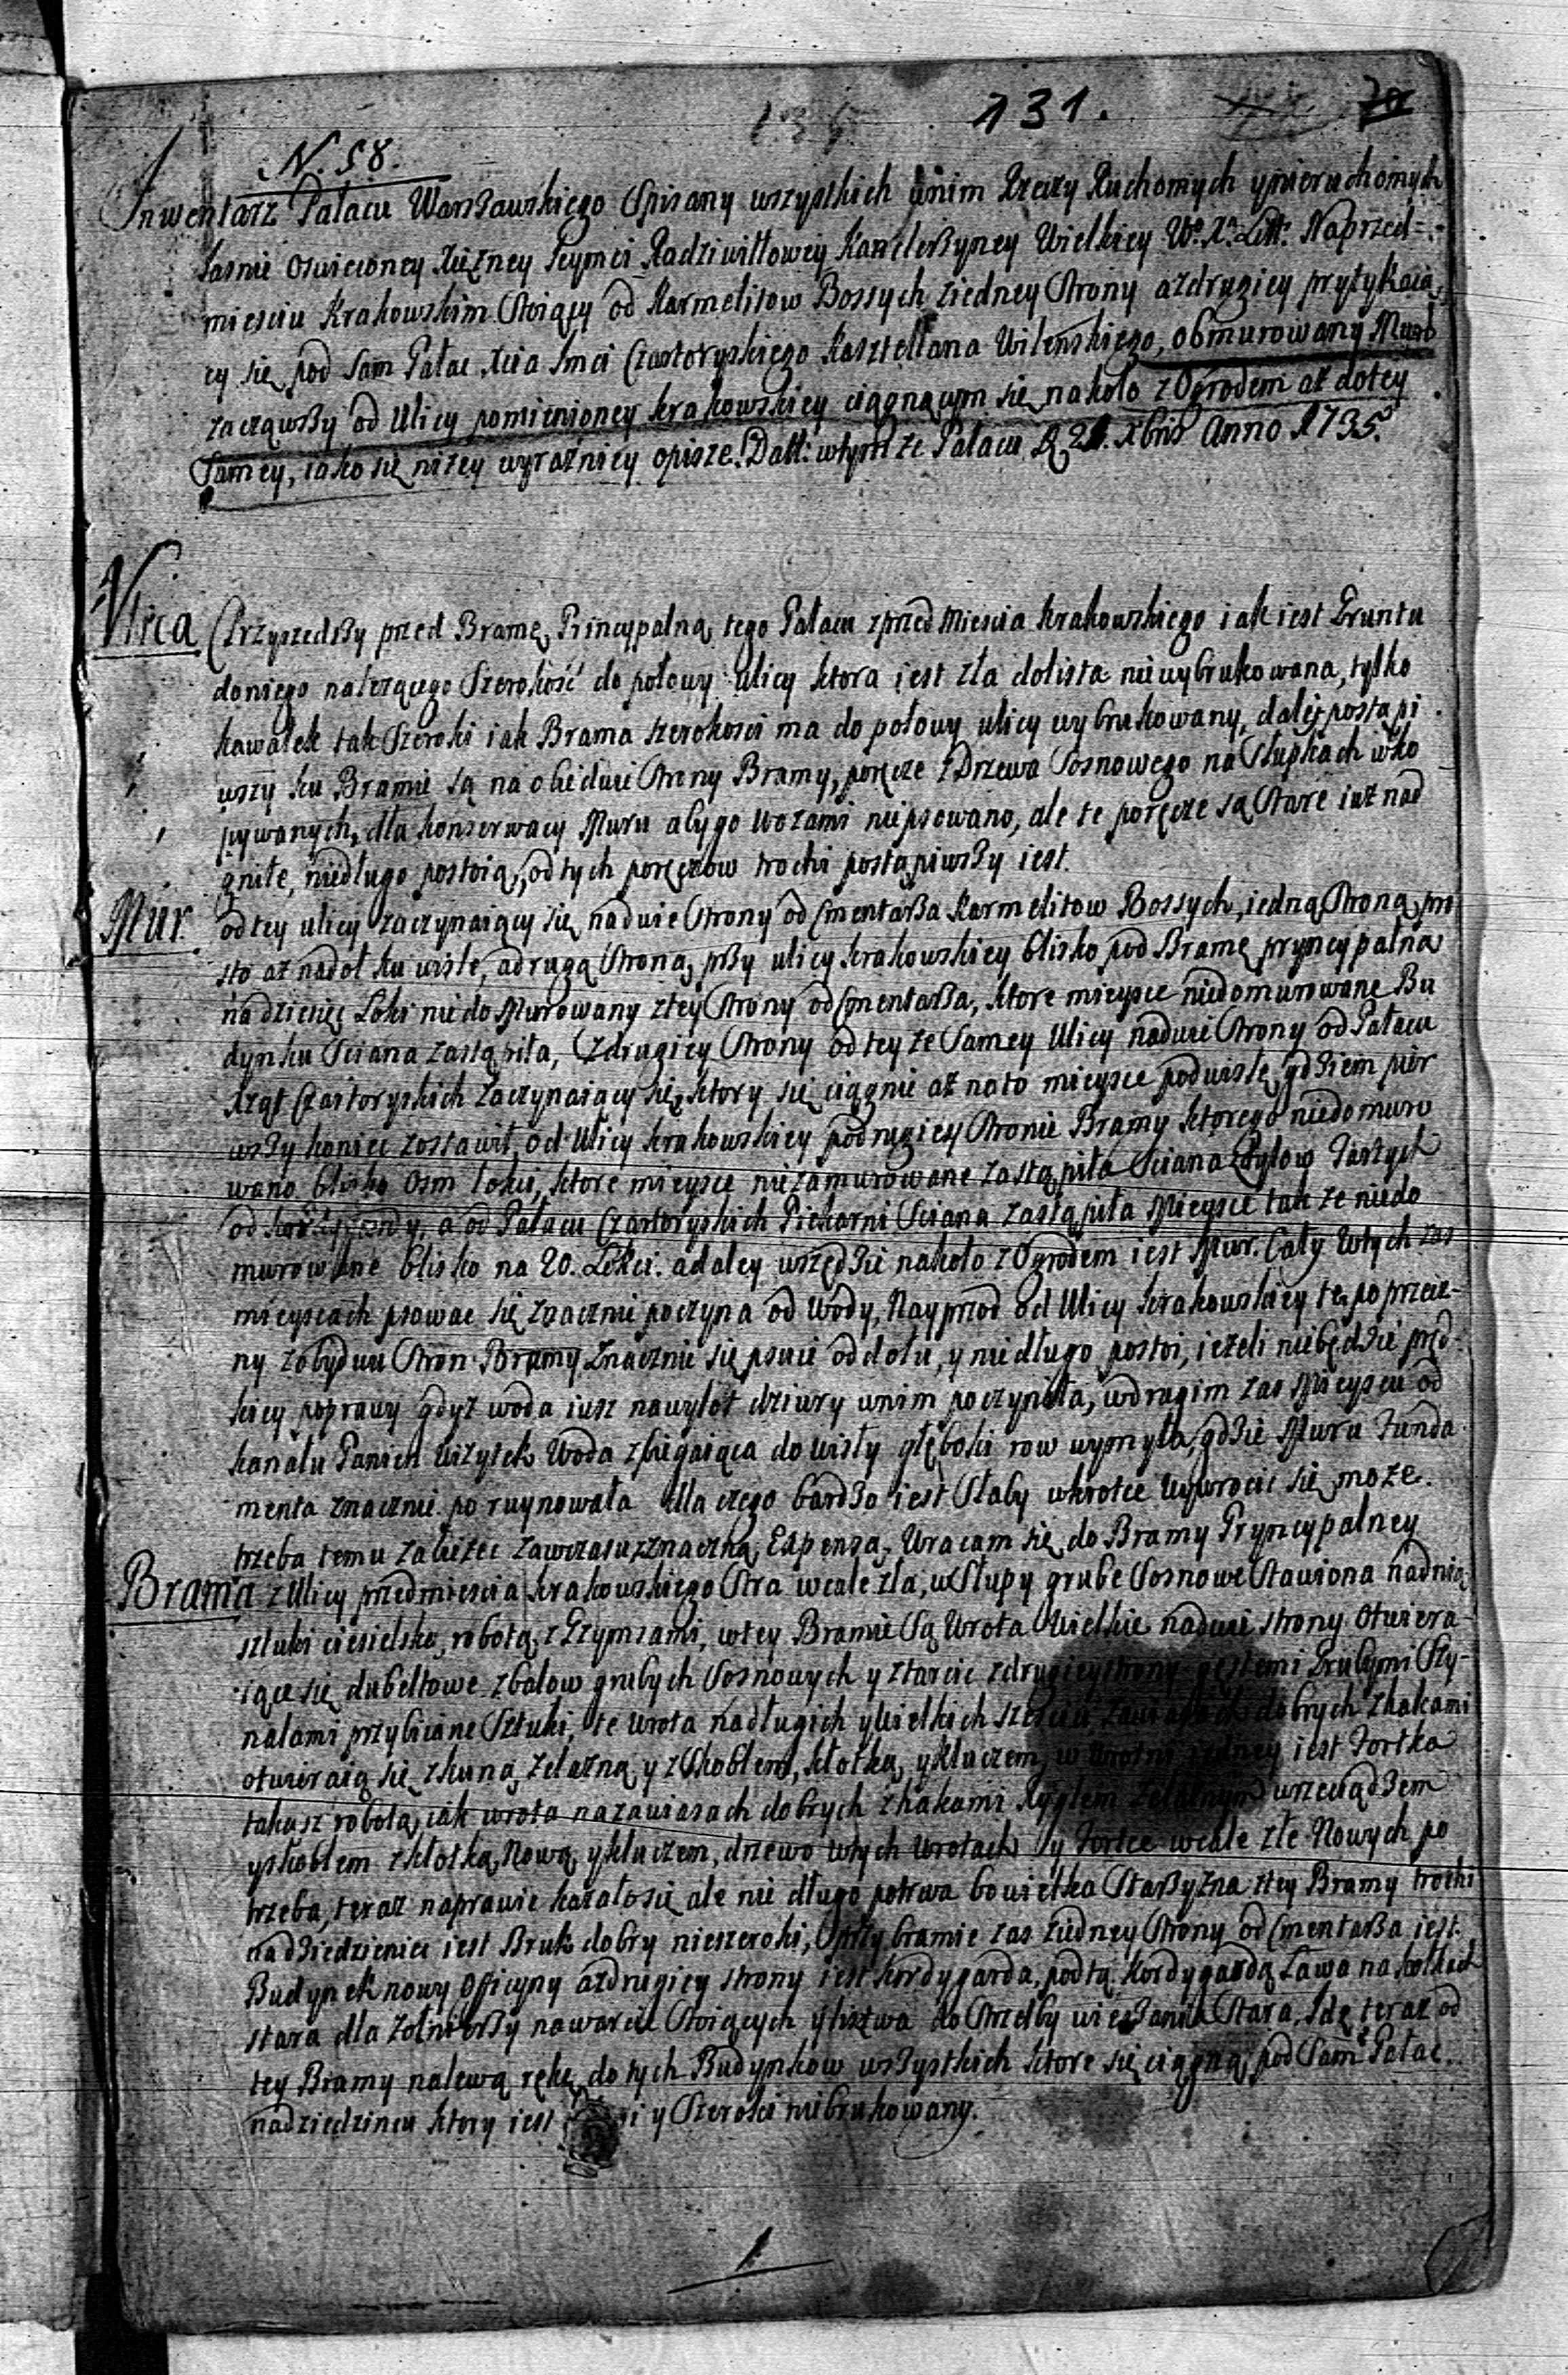 131.
N. 58.
Inwentarz Pałacu Warszawskiego Spisany wszystkich wnim Rzeczy Ruchomych y nieruchomych
Jasnie Oswieconey Xiężney Jeymci Radziwiłłowey Kanclerzyney Wielkiey W. X. Litt. Naprzed=
miesciu Krakowskim Stoiący od Karmelitow Bossych ziedney Strony azdrugiey prytykaią
cy się pod Sam Pałac Xcia Jmci Czartoryskiego Kasztellana Wilenskiego, obmurowany Mur
zacząwszy od Ulicy pomienioney krakowskiey ciągnącym się nakoło z Ogrodem aż dotey
Samey, iako się niżey wyrazniey opisze. Datt: wtymże Pałacu D 21. Xbris Anno 1735.
Ulica Przyszedszy przed Bramę Principalną tego Pałacu zprzed Miescia Krakowskiego iak iest Gruntu
doniego należącego Szerokość do połowy ulicy ktora iest zła dolista niewybrukowana, tylko
kawałek tak Szeroki iak Brama szerokosci ma do połowy ulicy wybrukowany, daley postąpi
wszy ku Bramie są na obiedwie Strony Bramy, poręcze z Drzewa Sosnowego na Słupkach wko
pywanych, dla konserwacy Muru aby go wozami niepsowano, ale te poręcze są Stare iuż nad
gniłe, niedługo postoią, od tych poręczow trochi postąpiwszy iest.
Mur. od tey ulicy zaczynaiący się nadwie Strony od Cmentarza Karmelitow Bossych, iedną Stroną pro
sto aż nadoł ku wisle, adrugą Stroną przy ulicy krakowskiey blisko pod Bramę pryncypalną
nadziesięć Łokci niedo Murowany ztey Strony od Cmentarza, ktore mieysce niedomurowane Bu
dynku Sciana zastąpiła, Zdrugiey Strony odteyże Samey Ulicy nadwie Strony od Pałacu
Xżąt Czartoryskich zaczynaiący się, ktory się ciągnie aż nato mieysce podwisłę gdziem pier
wszy koniec zostawił, od Ulicy krakowskiey podrugiey Stronie Bramy ktorego niedomuro
wano blisko Osm łokci, ktore mieysce niezamurowane zastąpiła Sciana Dylow
od kordygardy, a od Pałacu Czartoryskich Piekarni Sciana zastąpiła Mieysce także niedo
murowane blisko na 20. Łokci. adaley wszędzie nakoło z Ogrodem iest Mur. Cały Wtych zas
mieyscach psować się znacznie poczyna od Wody, Nayprzod od Ulicy krakowskiey te poprzecz-
ny zobydwu Stron Bramy znacznie się psuie oddołu, y niedługo postoi, ieżeli niebędzie pręd-
kiey poprawy gdyż woda iusz nawylot dziury wnim poczyniła, wdrugim zas Mieyscu od
kanału Panien Wizytek Woda zbiegaiąca do wisły głęboki row wymyła, gdzie Muru Funda
menta znacznie poruynowała dla czego bardzo iest Słaby wkrotce Wywrocić się może.
trzeba temu zabieżeć zawczasu, znaczną Expensą, Wracam się do Bramy Pryncypalney
Brama z Ulicy przedmiescia krakowskiego Stra wcale zła, w Słupy grube Sosnowe Stawiona nadnią
sztuki ciesielską robotą z Gzymsami, wtey Bramie Są Wrota Wielkie nadwie strony Otwiera-
iące się dubeltowe zbalow grubych Sosnowych y ztarcic zdrugiey strony gęstemi Grubymi Sty-
nalami przybiciane Sztuki, te wrota nadługich y wielkich szesciu zawiasach dobrych zhakami
otwieraią się zkuną żelazną y z Skoblem, kłotką, y kluczem, w wrotni iedney iest Fortka
takasz robotą iak wrota nazawiasach dobrych zhakami Ryglem żelaznym wrzeciądzem
yskoblem zkłotką Nową y kluczem, drzewo wtych wrotach y Fortce wcale złe Nowych po
trzeba, teraz naprawic kazałosię ale nie długo potrwa bo wielka Staszyzna ztey Bramy trochi
nadziedzieniec iest Bruk dobry nieszeroki, przy bramie zas ziedney Strony od Cmentarza iest
Budynek nowy Officyny azdrugiey strony iest kordygarda, podtą kordygardą Ława na kołkach
stara dla żołnierzy nawarcie Stoiących y listwa do Strzelby wieszania Stara, Idę teraz od
tey Bramy nalewą rękę do tych Budynkow wszystkich ktore się ciągną pod Sam Pałac.
nadziedzincu ktory iest y Szeroki niebrukowany.
1